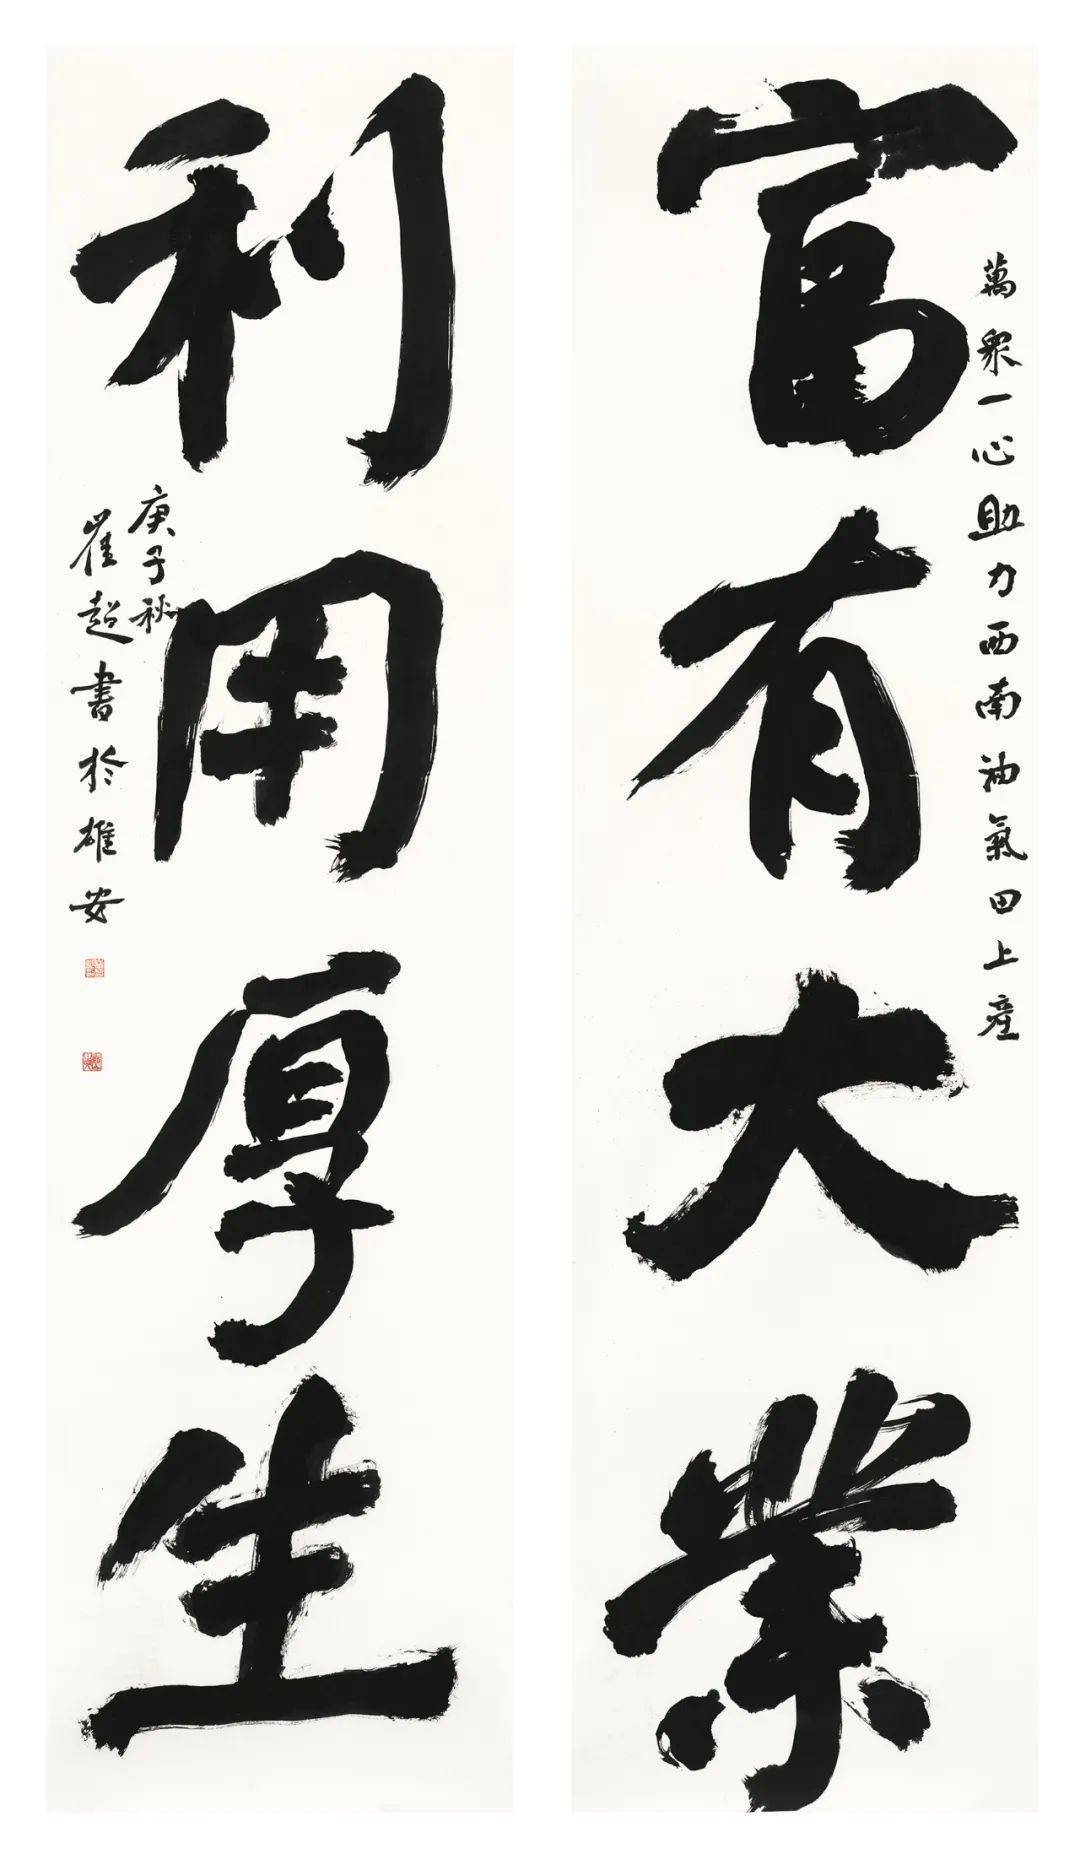 富有大業
萬衆一心助力西南油氣田上産
利用厚生
庚子秋
崔超書於雄安